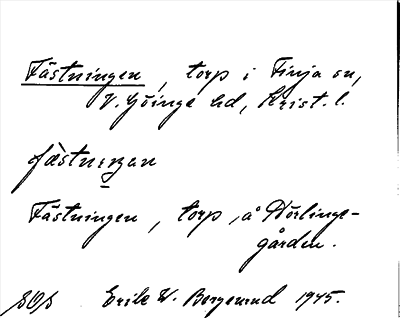 Fästningen, torp i Finja sn,
V. Göinge hd, Krist. l.
fæstnıŋan
Fästningen, torp, å Hörlinge-
gården.
SOS Erik W. Bergenrud 1945.